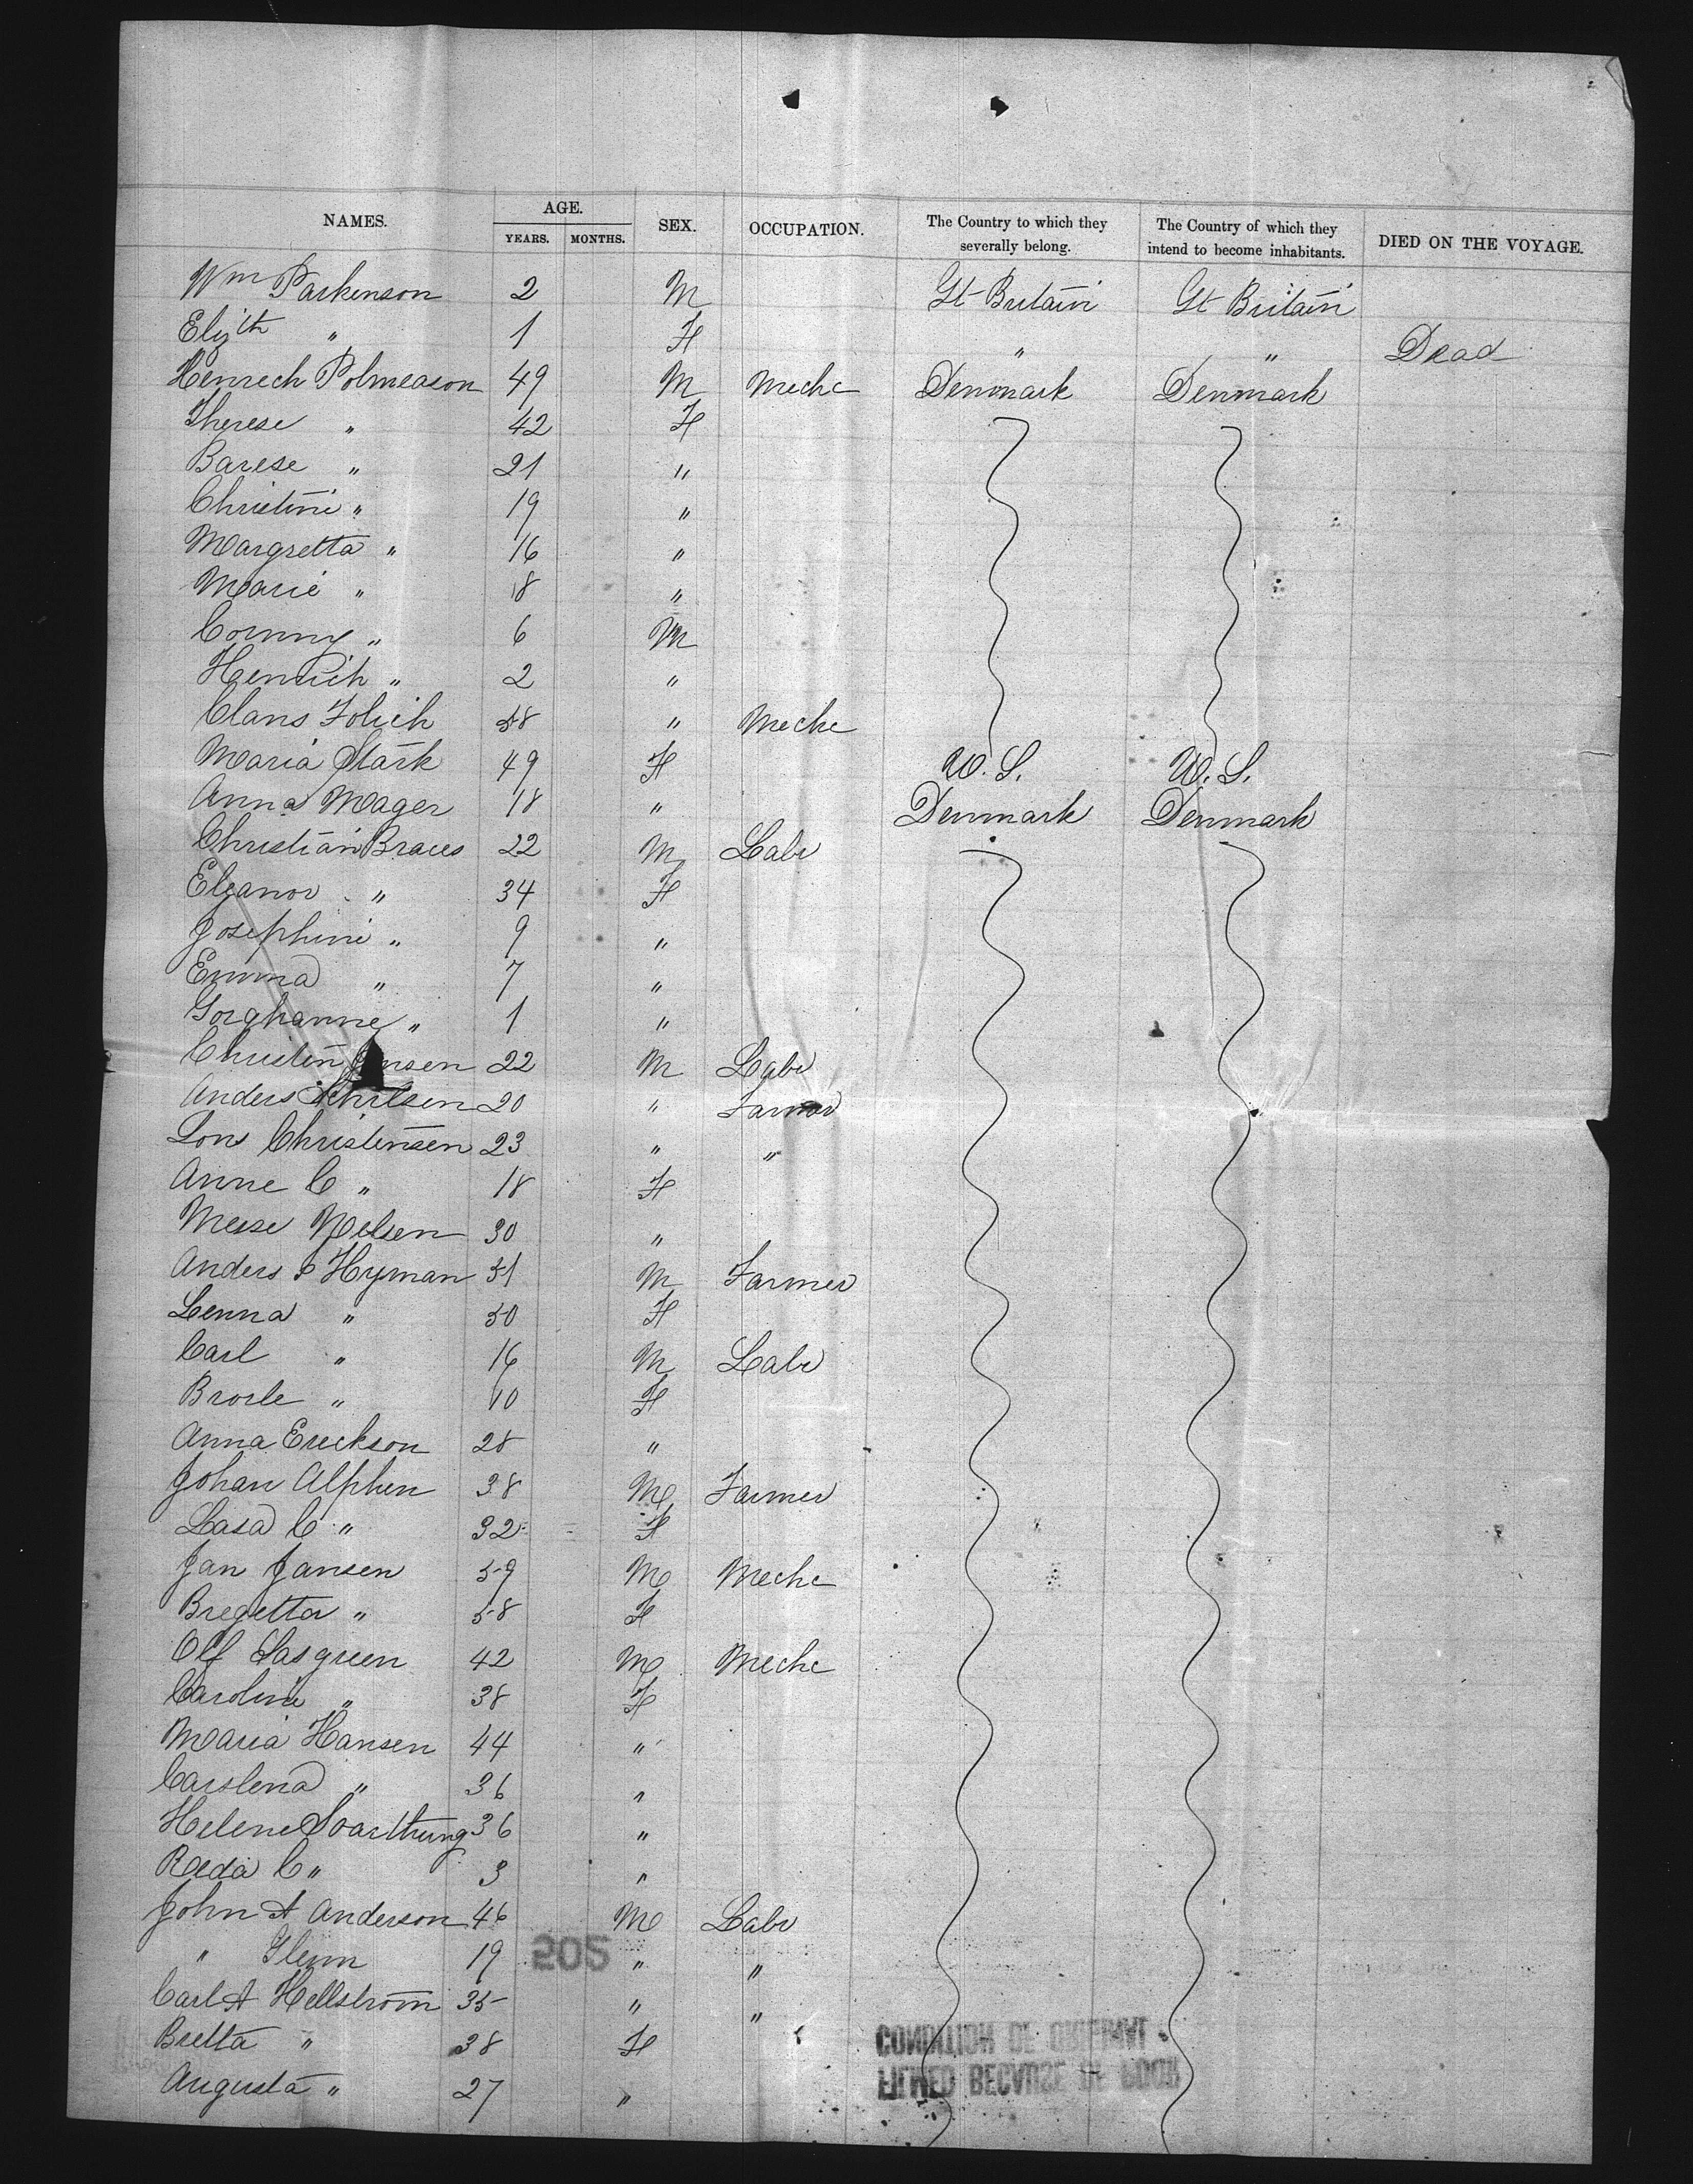 NAMES. AGE. YEARS. MONTHS. SEX. OCCUPATION. The Country to which they severally belong. The Country of which they intend to become inhabitants. DIED ON THE VOYAGE.
Wm Parkenson 2 M Gt Britain Gt Britain
Elizth " 1 F " " Dead
Henrech Polmeason 49 M Mechc Denmark Denmark
Therese " 42 F
Barese " 21 "
Christine " 19 "
Margretta " 16 "
Marie " 18 "
Conny " 6 M
Henrich " 2 "
Clans Folich 58 " Mechc
Maria Stark 49 F U.S. U.S.
Anna Mager 18 " Denmark Denmark
Christian Braces 22 M Labr
Eleanor " 34 F
Josephine " 9 "
Emma " 7 "
Gorghanne " 1 "
Christin Jensen 22 M Labr
Anders 20 " Farmer
Lons Christensen 23 " "
Anne C " 18 F
Mese Nelsen 30 "
Anders P Hyman 51 M Farmer
Lenna " 50 F
Carl " 16 M Labr
Brorle " 10 F
Anna Erickson 28 "
Johan Alphen 38 M Farmer
Lasa C " 32 F
Jan Jansen 59 M Mechc
Bregetta " 58 F
Olf Sasgreen 42 M Mechc
Caroline " 38 F
Maria Hansen 44 "
Carslena " 36 "
Helene Soarthung 36 "
Reda C " 3 "
John A Anderson 46 M Labr
" Glenn 19 " "
205
Carl A Hellstrom 35 " "
Bretta " 38 F
Augusta " 27 "